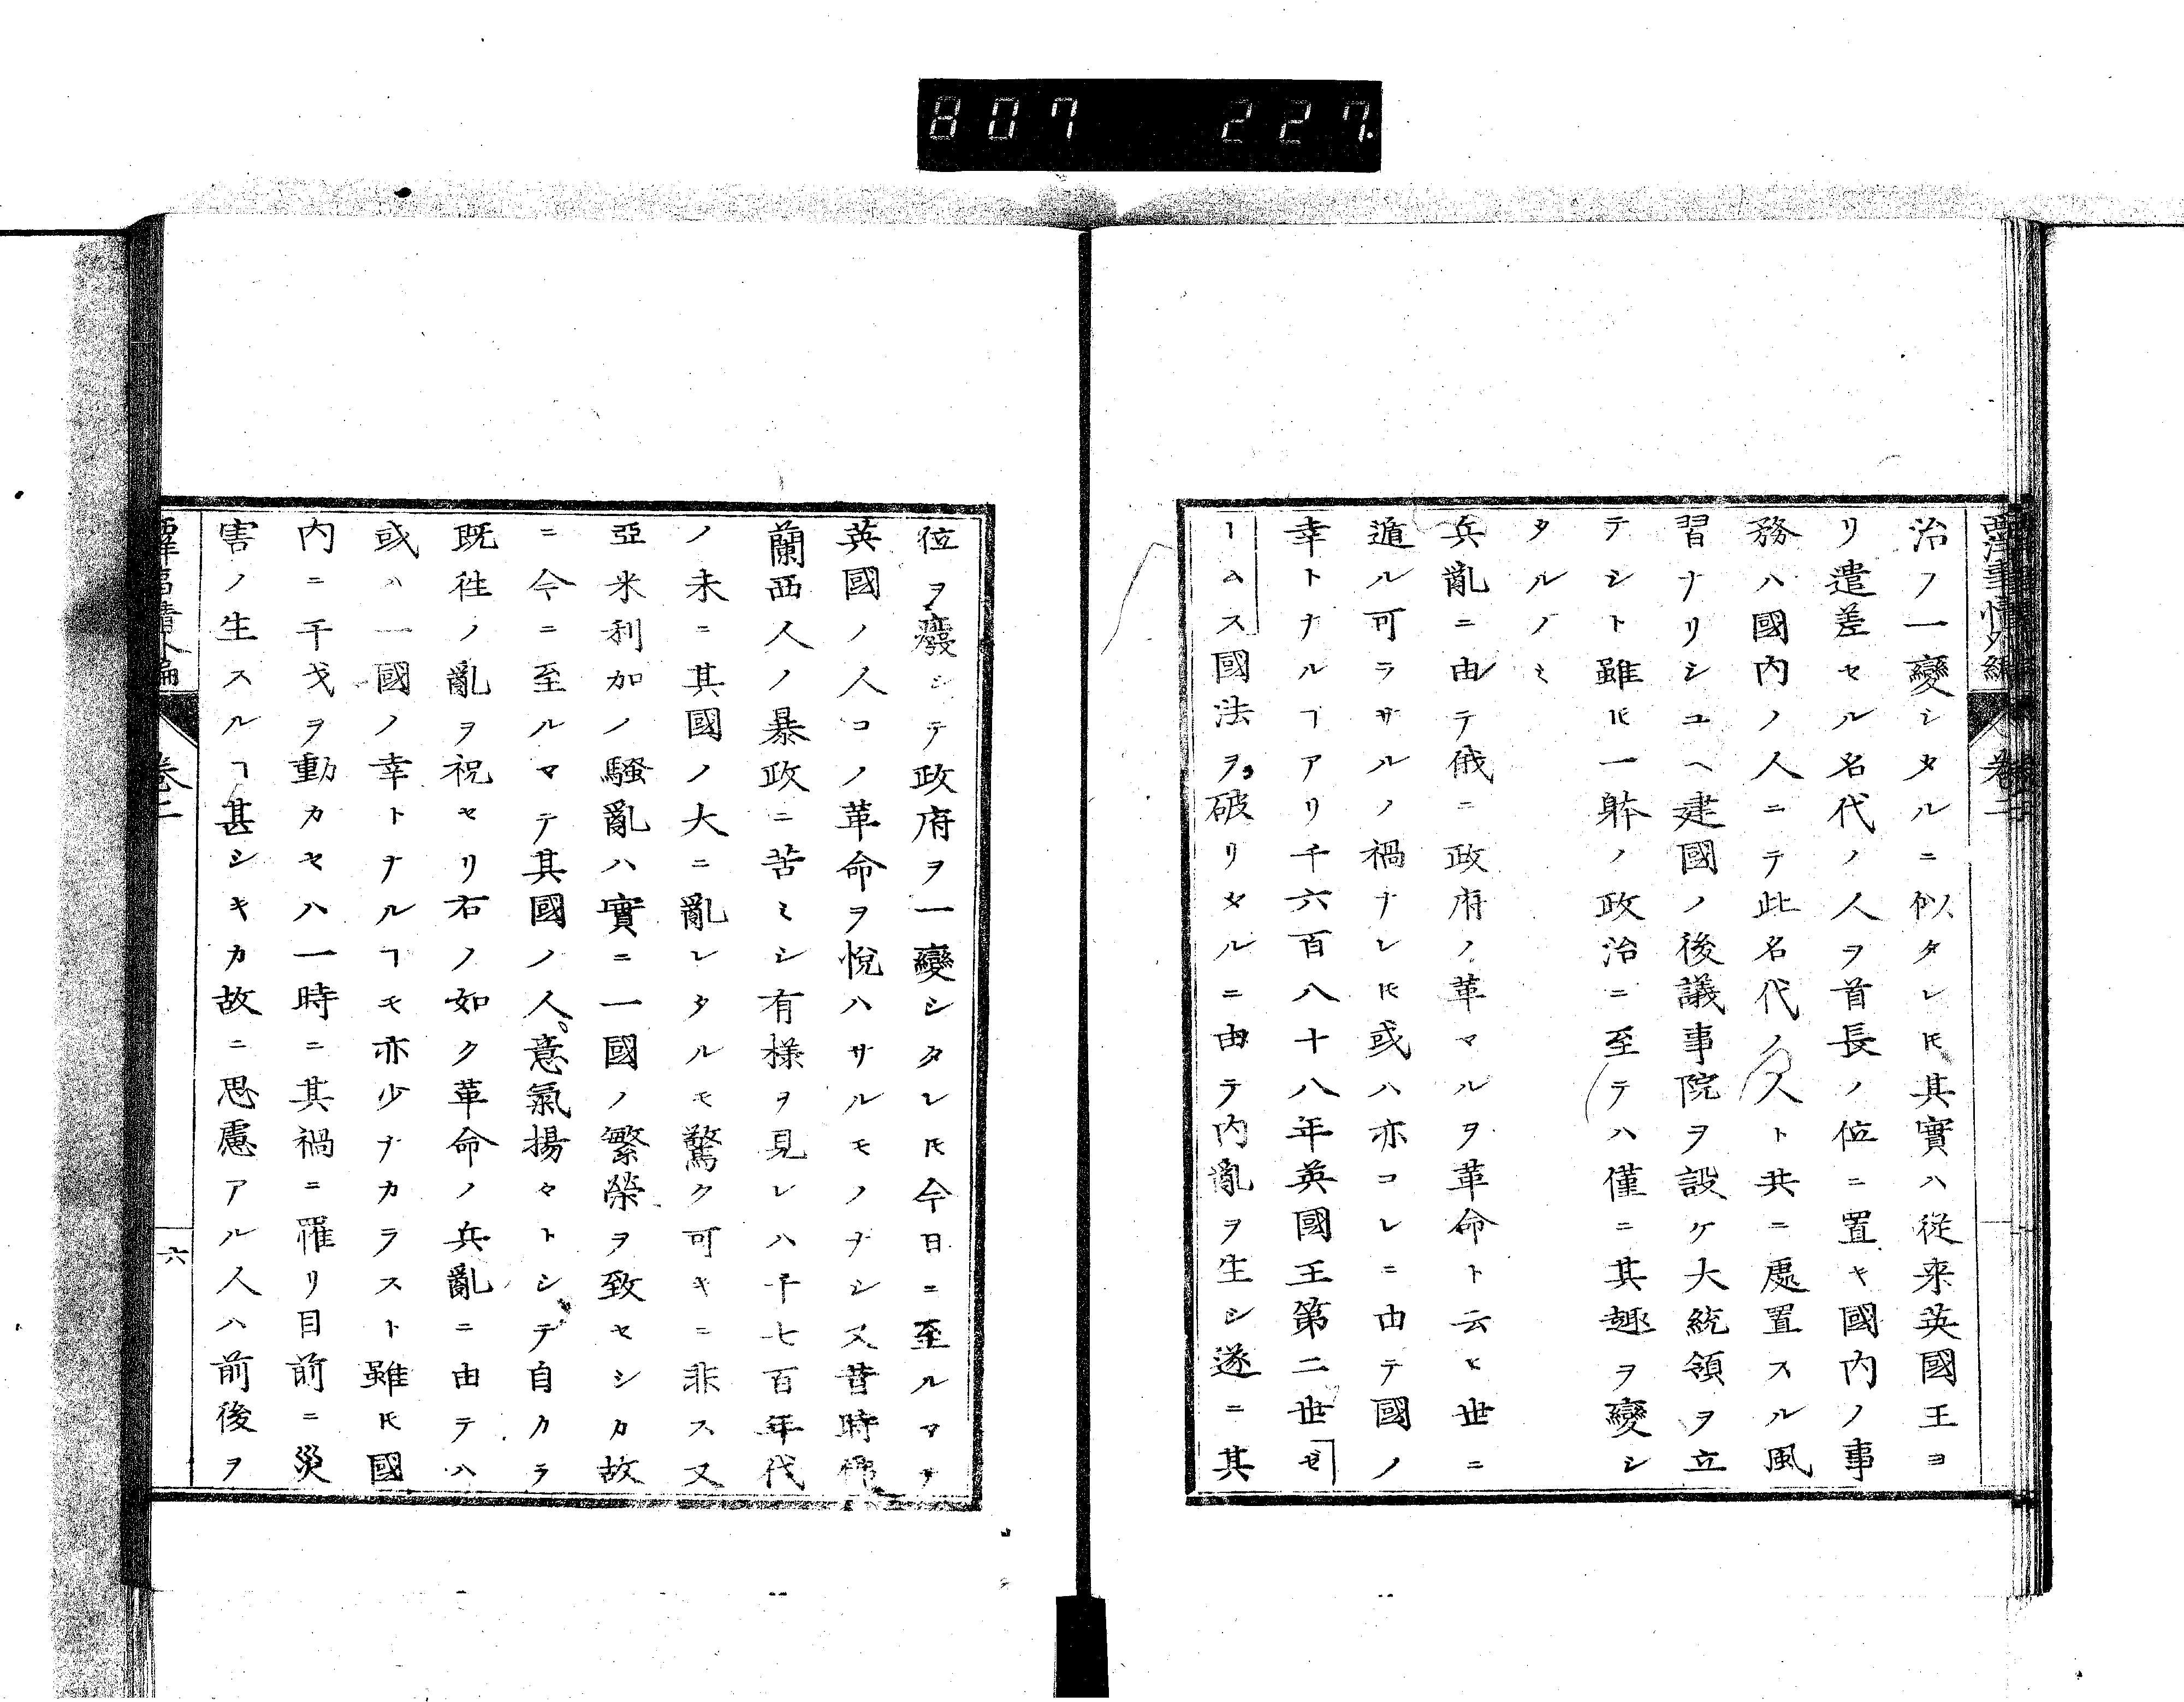 807 227.
西洋事情外編 卷二
治ノ一變シタルニ似タレ𪜈其實ハ從来英國王ヨ
リ遣差セル名代ノ人ヲ首長ノ位ニ置キ國内ノ事
務ハ國内ノ人ニテ此名代ノ人ト共ニ處置スル風
習ナリシユヘ建國ノ後議事院ヲ設ケ大統領ヲ立
テシト雖𪜈一躰ノ政治ニ至テハ僅ニ其趣ヲ變シ
タルノミ
兵亂ニ由テ俄ニ政府ノ革マルヲ革命ト云ヒ世ニ
遁ル可ラサルノ禍ナレ𪜈或ハ亦コレニ由テ國ノ
幸トナルヿアリ千六百八十八年英國王第二世ゼ
ームス國法ヲ破リタルニ由テ内亂ヲ生シ遂ニ其
位ヲ廢シテ政府ヲ一變シタレ𪜈今日ニ至ルマテ
英國ノ人コノ革命ヲ悅ハサルモノナシ又昔時佛
蘭西人ノ暴政ニ苦ミシ有様ヲ見レハ千七百年代
ノ末ニ其國ノ大ニ亂レタルモ驚ク可キニ非ス又
亞米利加ノ騒亂ハ實ニ一國ノ繁榮ヲ致セシカ故
ニ今ニ至ルマテ其國ノ人意氣揚々トシテ自カラ
既往ノ亂ヲ祝セリ右ノ如ク革命ノ兵亂ニ由テハ
或ハ一國ノ幸トナルヿモ亦少ナカラスト雖𪜈國
内ニ干戈ヲ動カセハ一時ニ其禍ニ罹リ目前ニ災
害ノ生スルヿ甚シキカ故ニ思慮アル人ハ前後ヲ
西洋事情外編 卷二 六